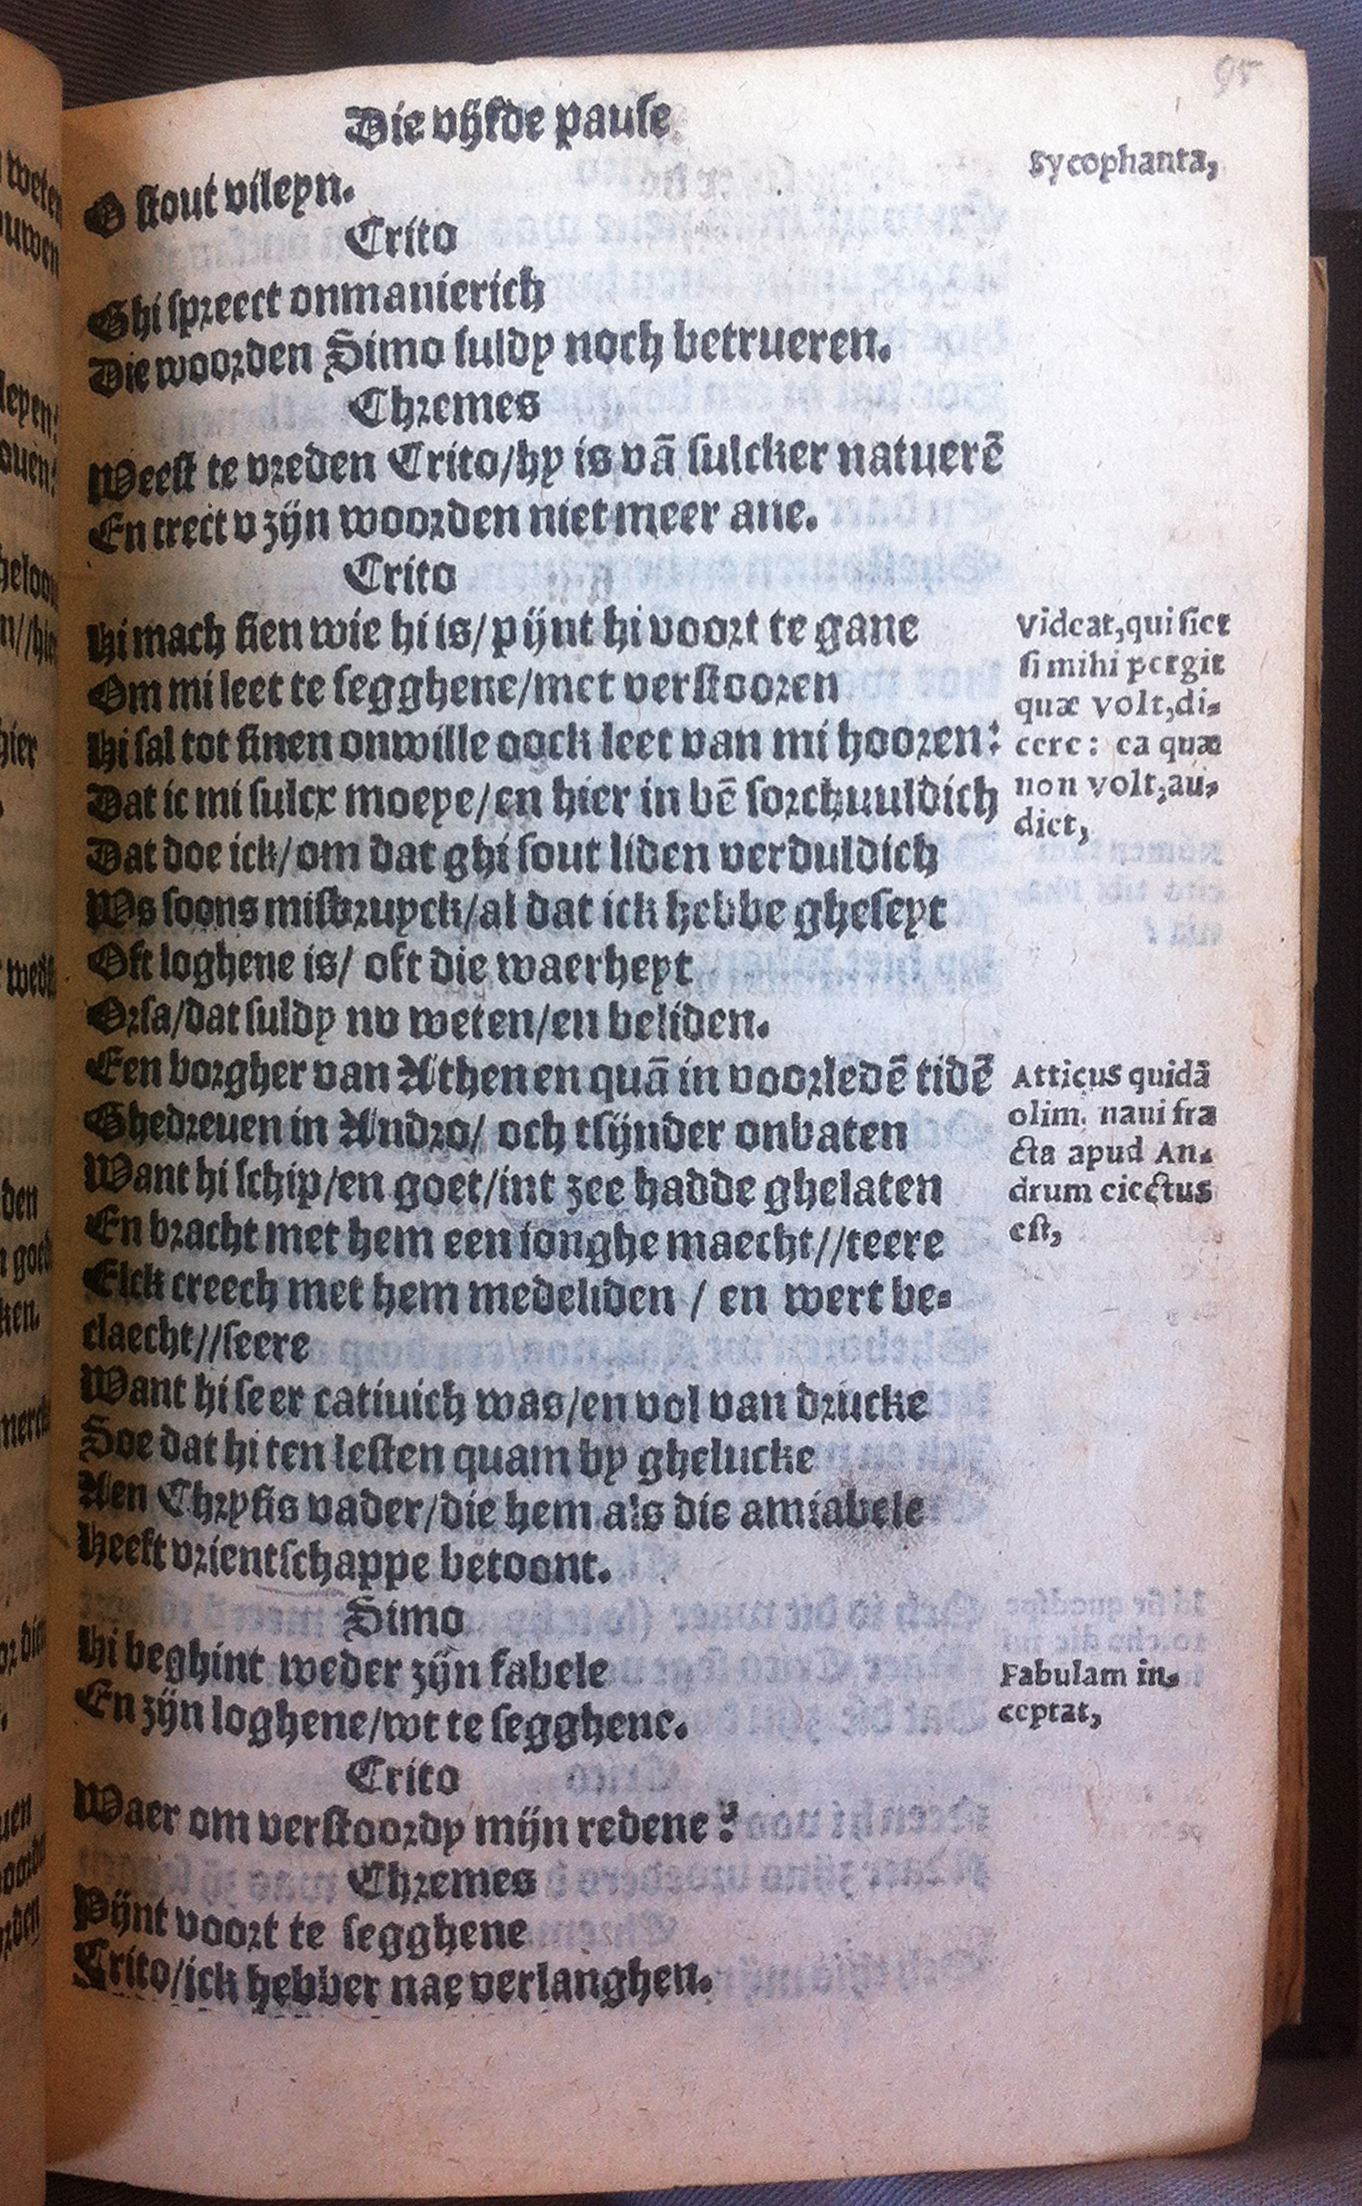 95
Die vijfde pause
O stout vileyn.
Sycophanta,
Crito
Ghi spreect onmanierich
Die woorden Simo suldy noch betrueren.
Chremes
Weest te vreden Crito/hy is vā sulcker natuerē
En trect v zijn woorden niet meer ane.
Crito
Hi mach sien wie hi is/pijnt hi voort te gane
Om mi leet te segghene/met verstooren
Hi sal tot sinen onwille oock leet van mi hooren:
Dat ic mi sulcx moeye/en hier in bē sorchuuldich
Dat doe ick/om dat ghi sout liden verduldich
Ws soons misbruyck/al dat ick hebbe gheseyt
Oft loghene is/ oft die waerheyt
Orsa/dat suldy nv weten/en beliden.
Videat,qui siet
si mihi pergit
quæ volt,di-
cere: ea quæ
non volt,au-
diet,
Een borgher van Athenen quā in voorledē tidē
Ghedreuen in Andro/ och tsijnder onbaten
Want hi schip/en goet/int zee hadde ghelaten
En bracht met hem een ionghe maecht//teere
Elck creech met hem medeliden / en wert be-
claecht//seere
Want hi seer catiuich was/en vol van drucke
Soe dat hi ten lesten quam by ghelucke
Aen Chrysis vader/die hem als die amiabele
Heeft vrientschappe betoont.
Atticus quidā
olim, naui fra
cta apud An-
drum eiectus
est,
Simo
Hi beghint weder zijn fabele
En zijn loghene/wt te segghene.
Fabulam in-
ceptat,
Crito
Waer om verstoordy mijn redene?
Chremes
Pijnt voort te segghene
Crito/ick hebber nae verlanghen.